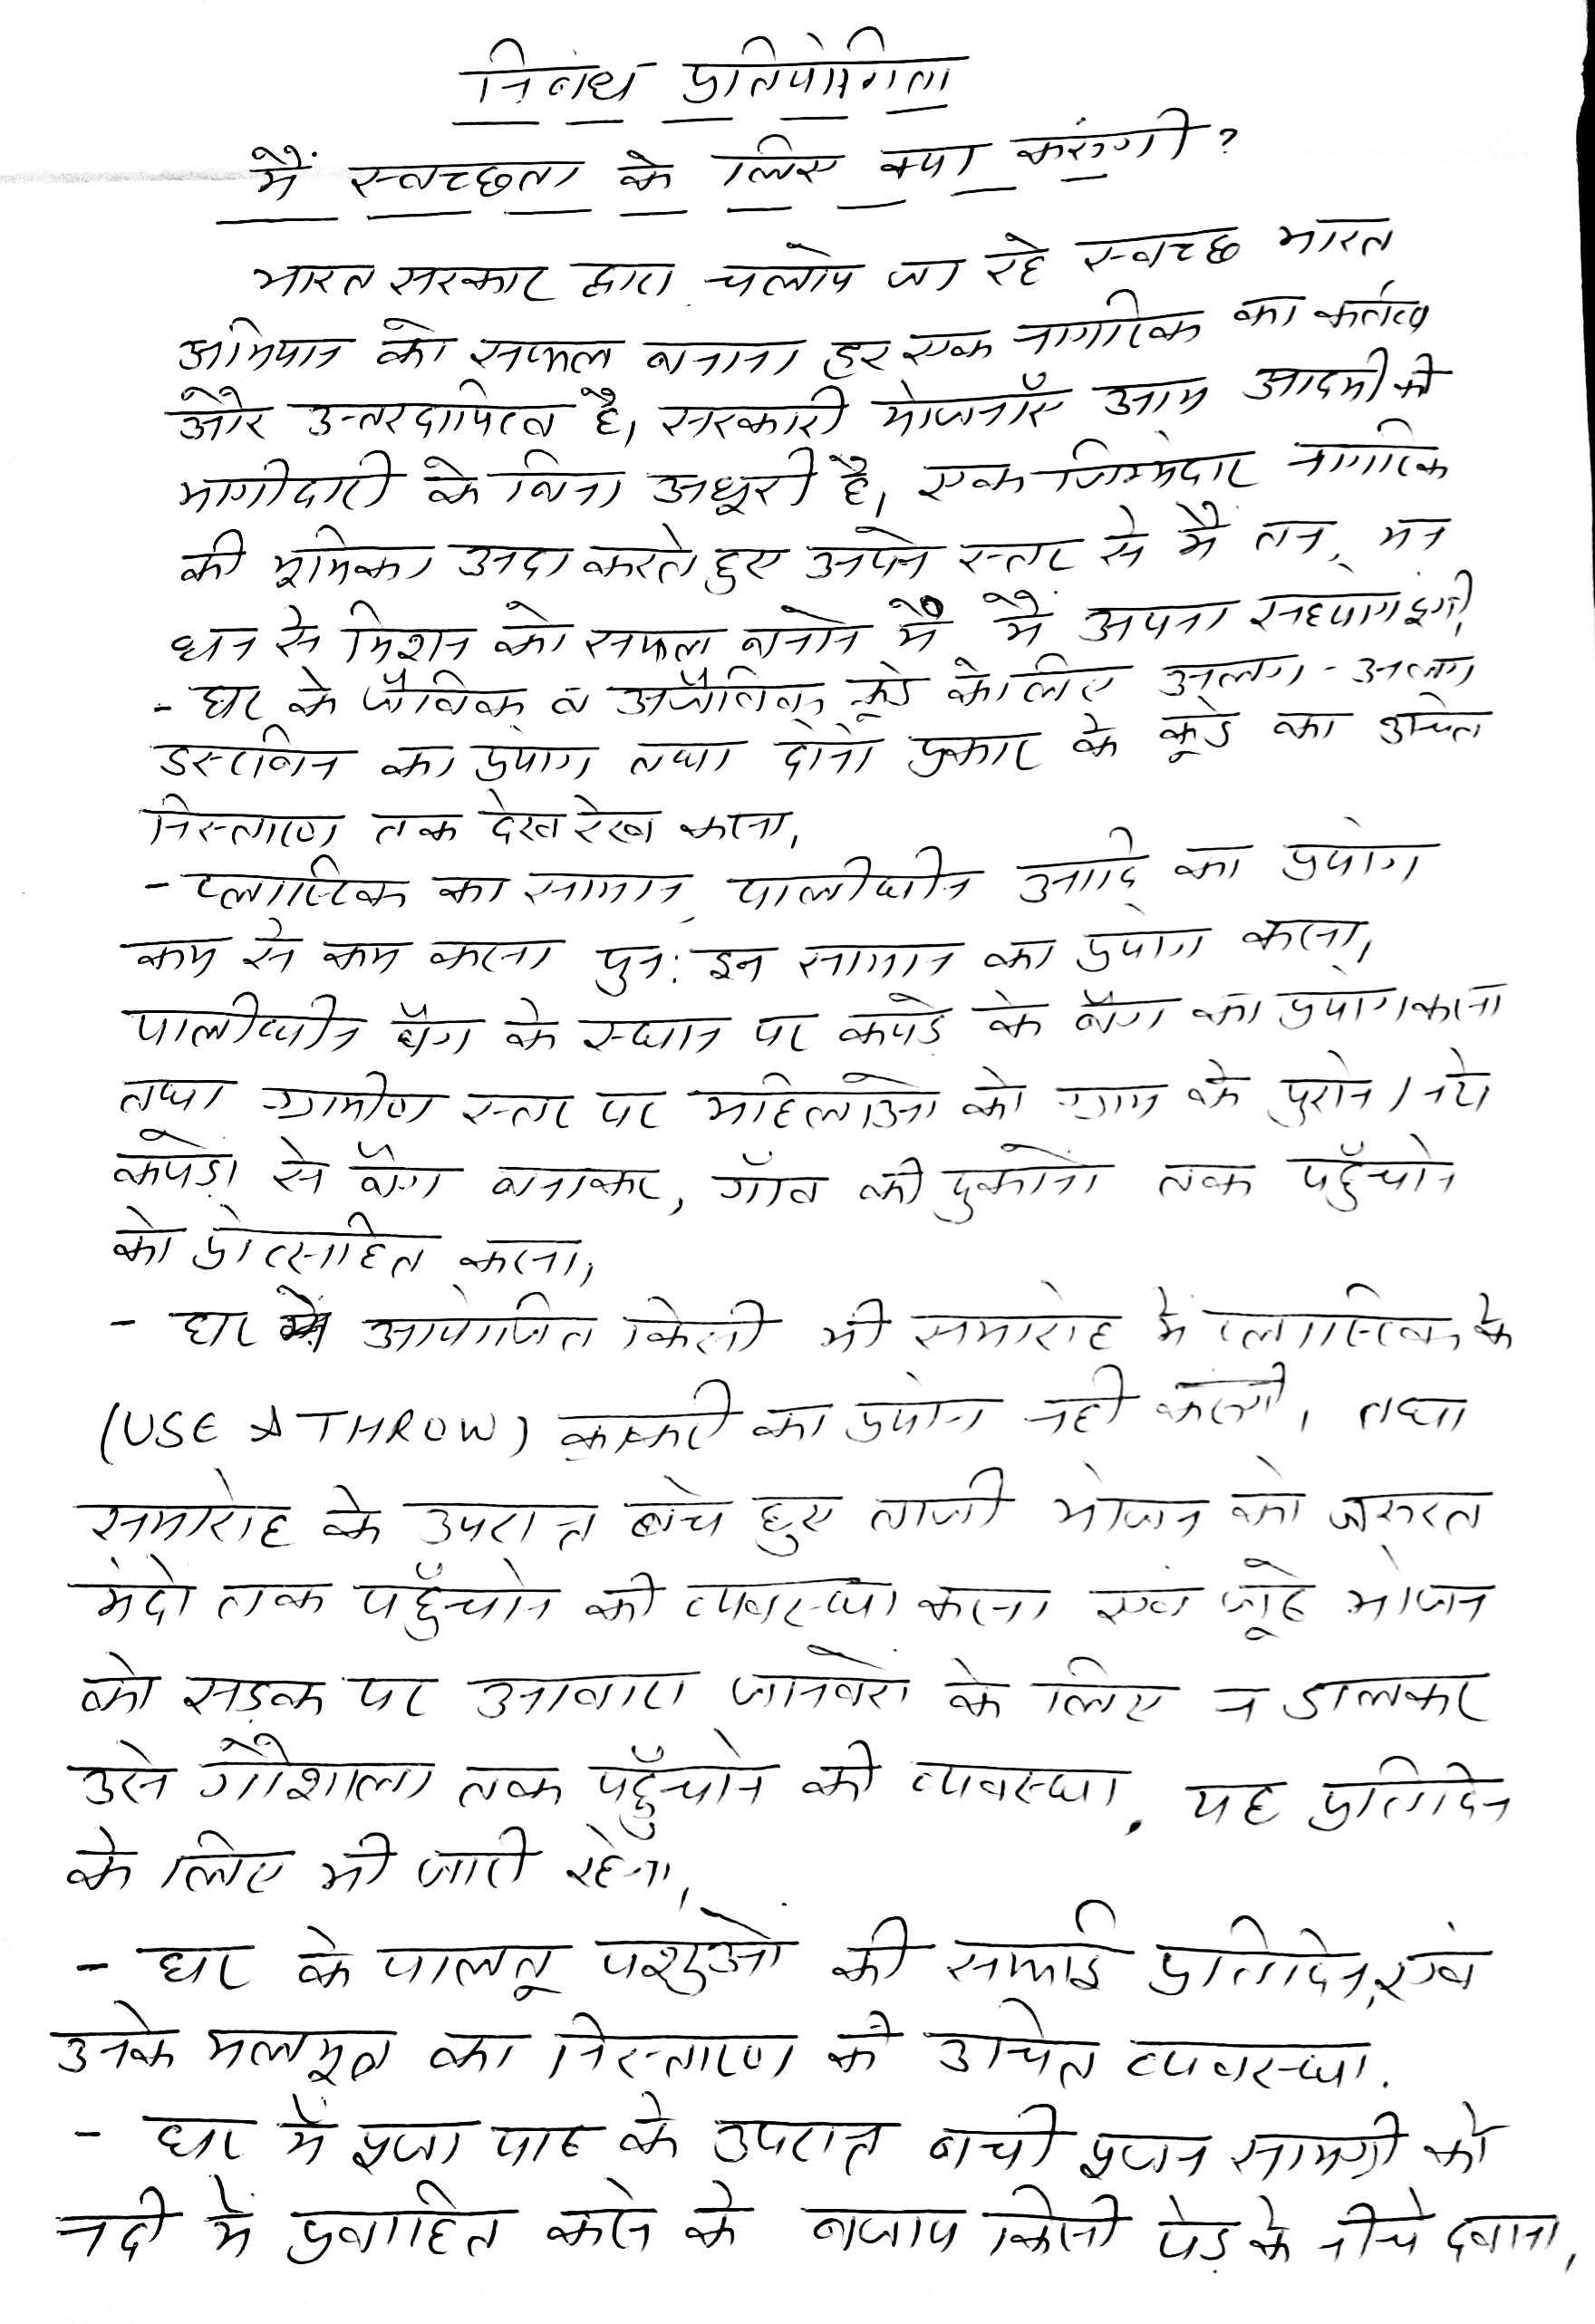 निबंध प्रतियोगिता
मैं स्वच्छता के लिए क्या करुंगी?
भारत सरकार द्वारा चलाये जा रहे स्वच्छ भारत
अभियान को सफल बनाना हर एक नागरिक का कर्तव्य
और उत्तरदायित्व है। सरकारी योजनाएँ आम आदमी की
भागीदारी के बिना अधूरी है। एक जिम्मेदार नागरिक
की भूमिका अदा करते हुए अपने स्तर से मैं तन, मन
धन से मिशन को सफल बनाने में मैं अपना सहयोग दूंगी।
- घर के जैविक व अजैविक कूड़े के लिए अलग-अलग
डस्टबिन का प्रयोग तथा दोनो प्रकार के कूड़े का उचित
निस्तारण तक देख रेख करना।
- प्लास्टिक का सामान, पालीथीन आदि का प्रयोग
कम से कम करना पुन: इन सामान का प्रयोग करना।
पालीथीन बैग के स्थान पर कपड़े के बैग का प्रयोग करना
तथा ग्रामीण स्तर पर महिलाओ को ग्राम के पुराने / नये
कपड़ो से बैग बनाकर, गॉव की दुकानों तक पहुँचाने
को प्रोत्साहित करना।
- घर में आयोजित किसी भी समारोह मे प्लास्टिक के
(USE & THROW) क्राकरी का प्रयोग नही करुंगी। तथा
समारोह के उपरान्त बचे हुए ताजी भोजन को जरुरत
मंदो तक पहुँचाने की व्यवस्था करना एवं जूठे भोजन
को सड़क पर आवारा जानवरों के लिए न डालकर
उसे गौशाला तक पहुँचाने की व्यवस्था. यह प्रतिदिन
के लिए भी जारी रहेगा।
- घर के पालतू पशुओं की सफाई प्रतिदिन, एवं
उनके मलमूत्र का निस्तारण की उचित व्यवस्था.
- घर में पूजा पाठ के उपरान्त बची पूजन सामग्री को
नदी में प्रवाहित करने के बजाय किसी पेड़ के नीचे दबाना।